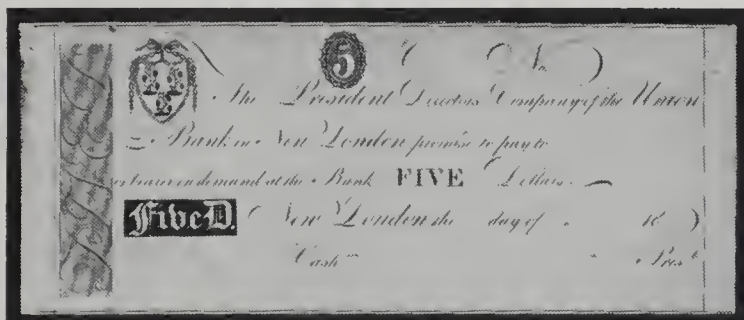 5 No.
The President Directors & Company of the Union
Bank in New London promise to pay to
or bearer on demand at the Bank FIVE Dollars
FiveD. New London the day of 18
Cash.r Pres.t